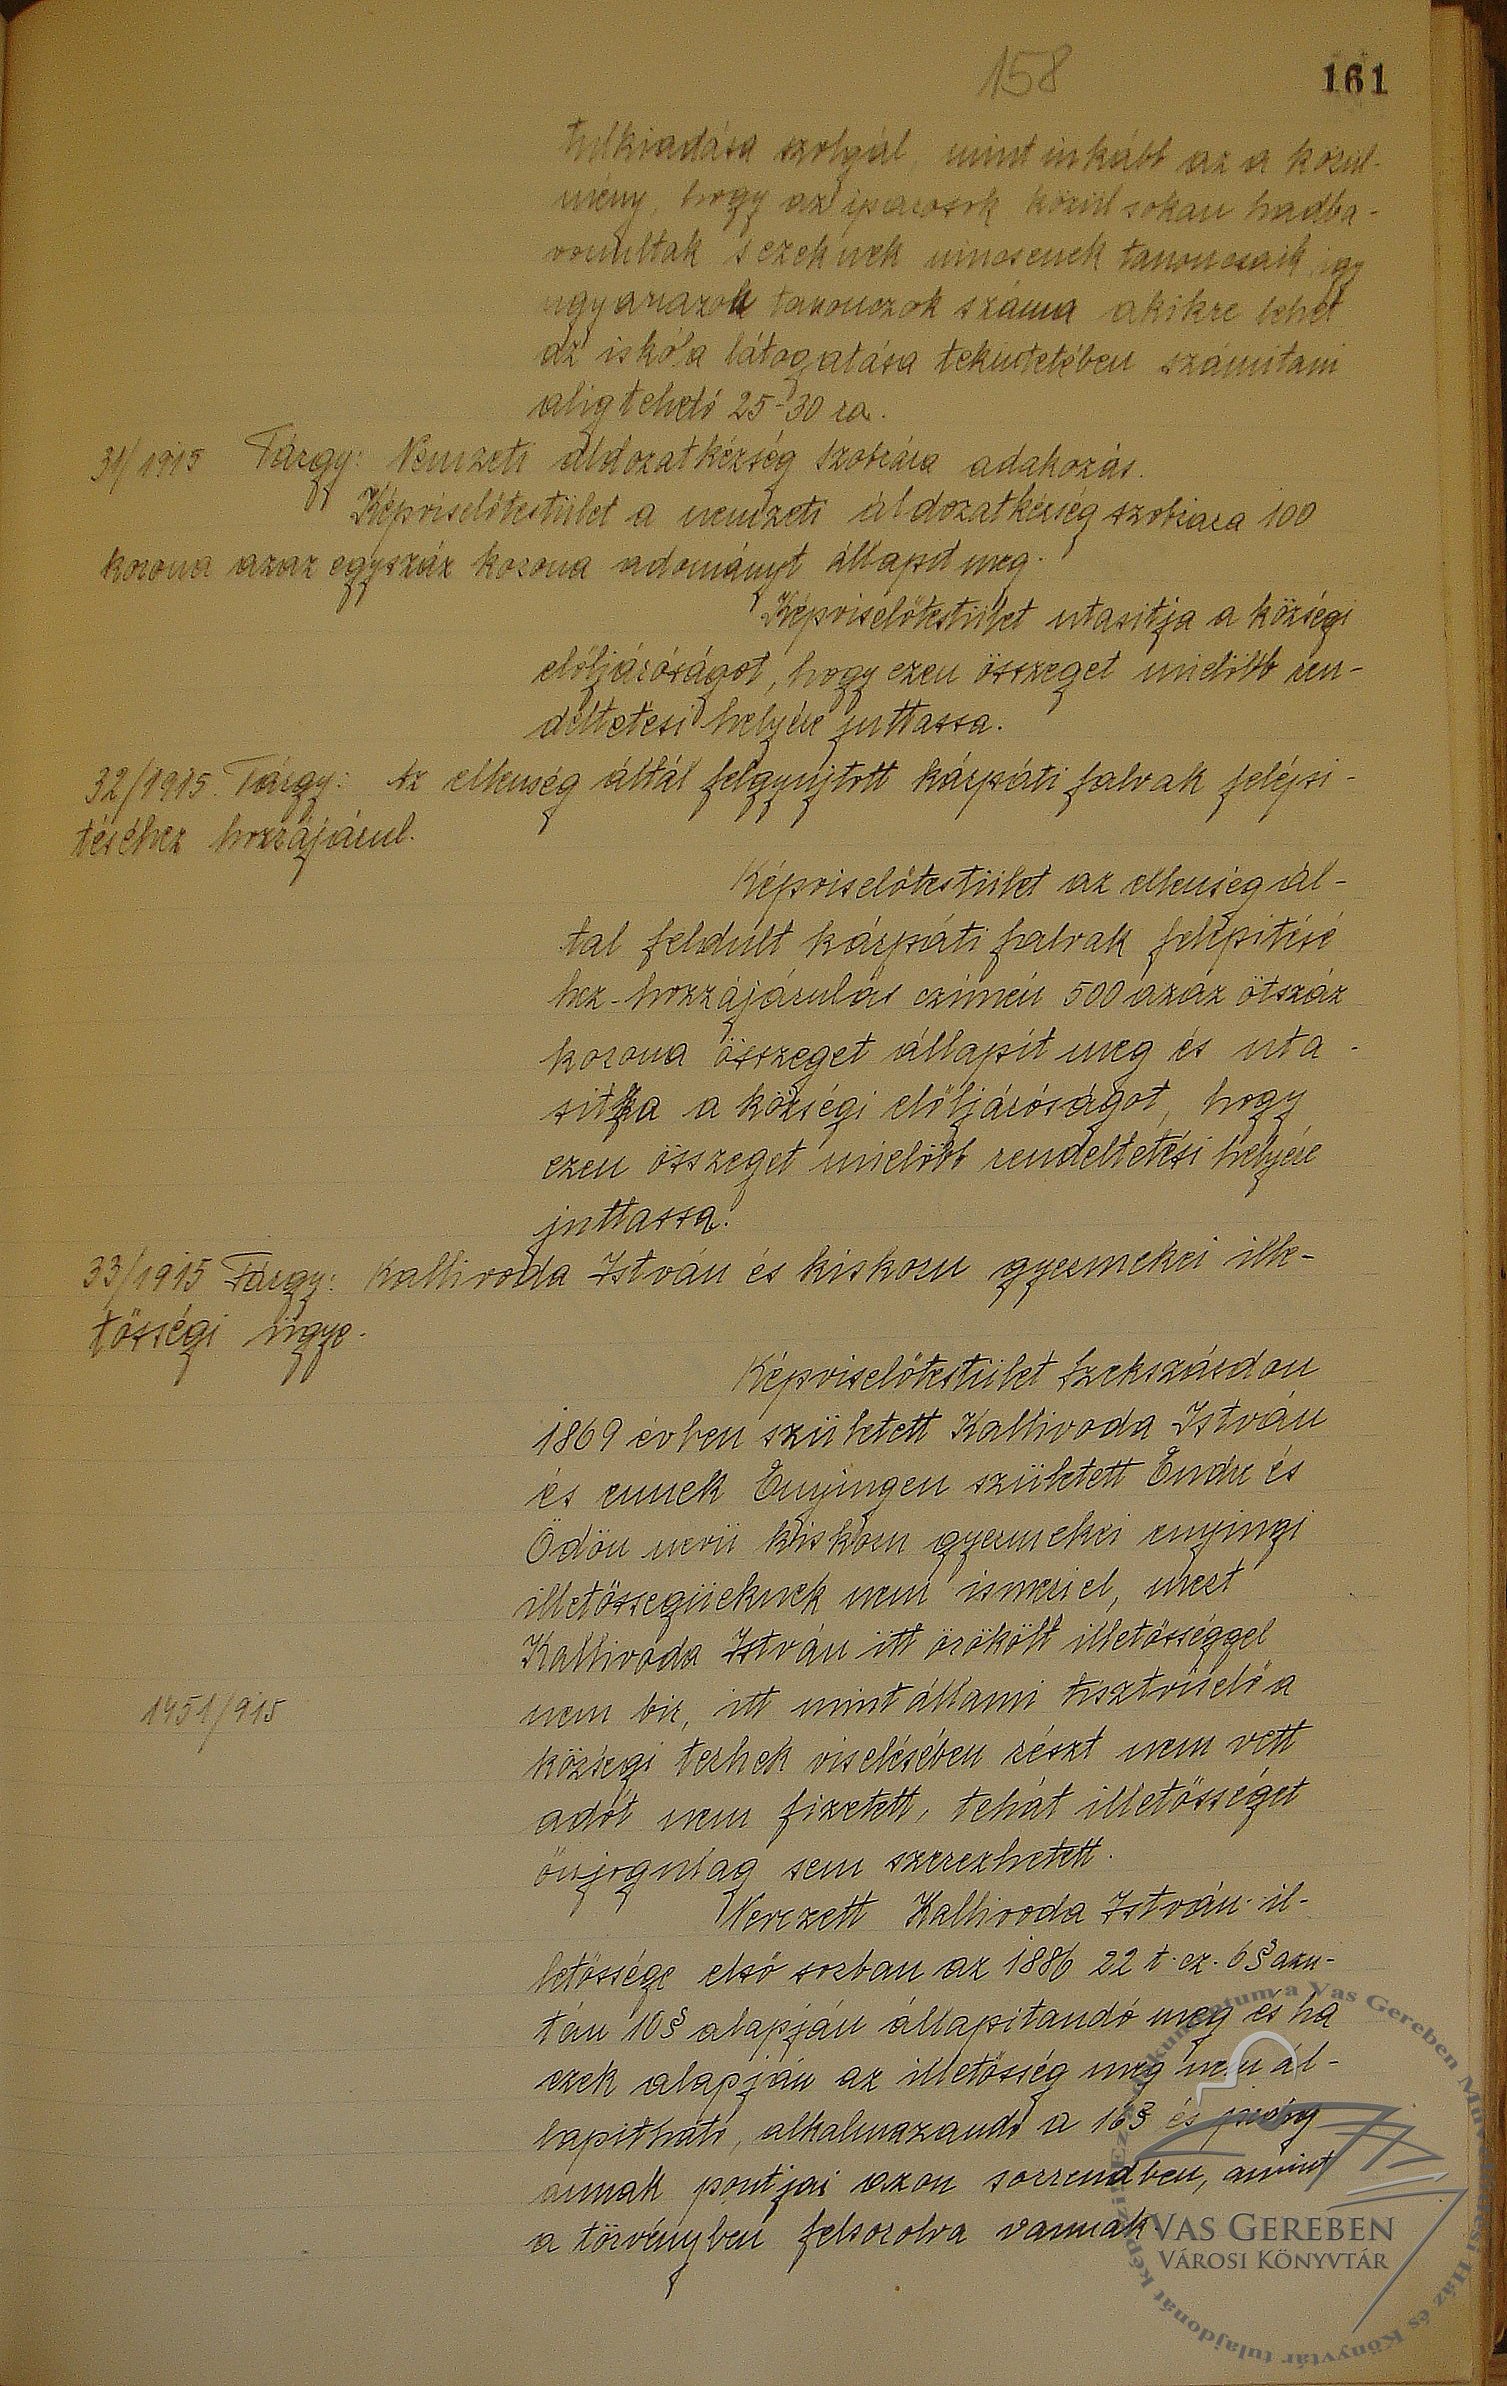 158
161
szolgál, mint inkább az a körül-
mény, hogy az iparosok közül sokan hadba-
vonultak s ezeknek nincsenek tanoncaik igy
ugyanazok tanonczok száma akikre lehet
az iskola látogatása tekintetében számitani
alig tehető 25-30 ra.
31/1915 Tárgy: Nemzeti áldozatkészség szobrára adakozás.
Képviselőtestület a nemzeti áldozatkészség szobrára 100
korona azaz egyszáz korona adományt állapit meg.
Képviselőtestület utasitja a községi
elöljáróságot, hogy ezen összeget mielőbb ren-
deltetesi helyére juttassa.
32/1915. Tárgy: Az ellenség által felgyujtott kárpáti falvak felépi-
téséhez hozzájárul.
Képviselőtestület az ellenség ál-
tal feldult kárpáti falvak felépitésé
hez-hozzájárulás czimén 500 azaz ötszáz
korona összeget állapit meg és uta-
sitja a községi elöljáróságot, hogy
ezen összeget mielőbb rendeltetési helyére
juttassa.
33/1915 Tárgy: Kallivoda István és kiskoru gyermekei ille-
tősségi ügye.
Képviselőtestület Szekszárdon
1869 évben született Kallivoda István
és ennek Enyingen született Endre és
Ödön nevü kiskoru gyermekei enyingi
illetősségüeknek nem ismeri el, mert
Kallivoda István itt örökölt illetősséggel
nem bir, itt mint állami tisztviselő a
1451/915
községi terhek viselésében részt nem vett
adót nem fizetett, tehát illetősséget
önjogulag sem szerezhetett.
Nevezett Kallivoda István il-
letőssége első sorban az 1886 22 t. cz. 6 § azu-
tán 10 § alapján állapitandó meg és ha
ezek alapján az illetősség meg nem ál-
lapitható, alkalmazandó a 16 § és pedig
annak pontjai azon sorrendben, amint
a törvényben felsorolva vannak.
VAS GEREBEN
VÁROSI KÖNYVTÁR
Ez a dokumentum a Vas Gereben Művelődési Ház és Könyvtár tulajdonát képezi